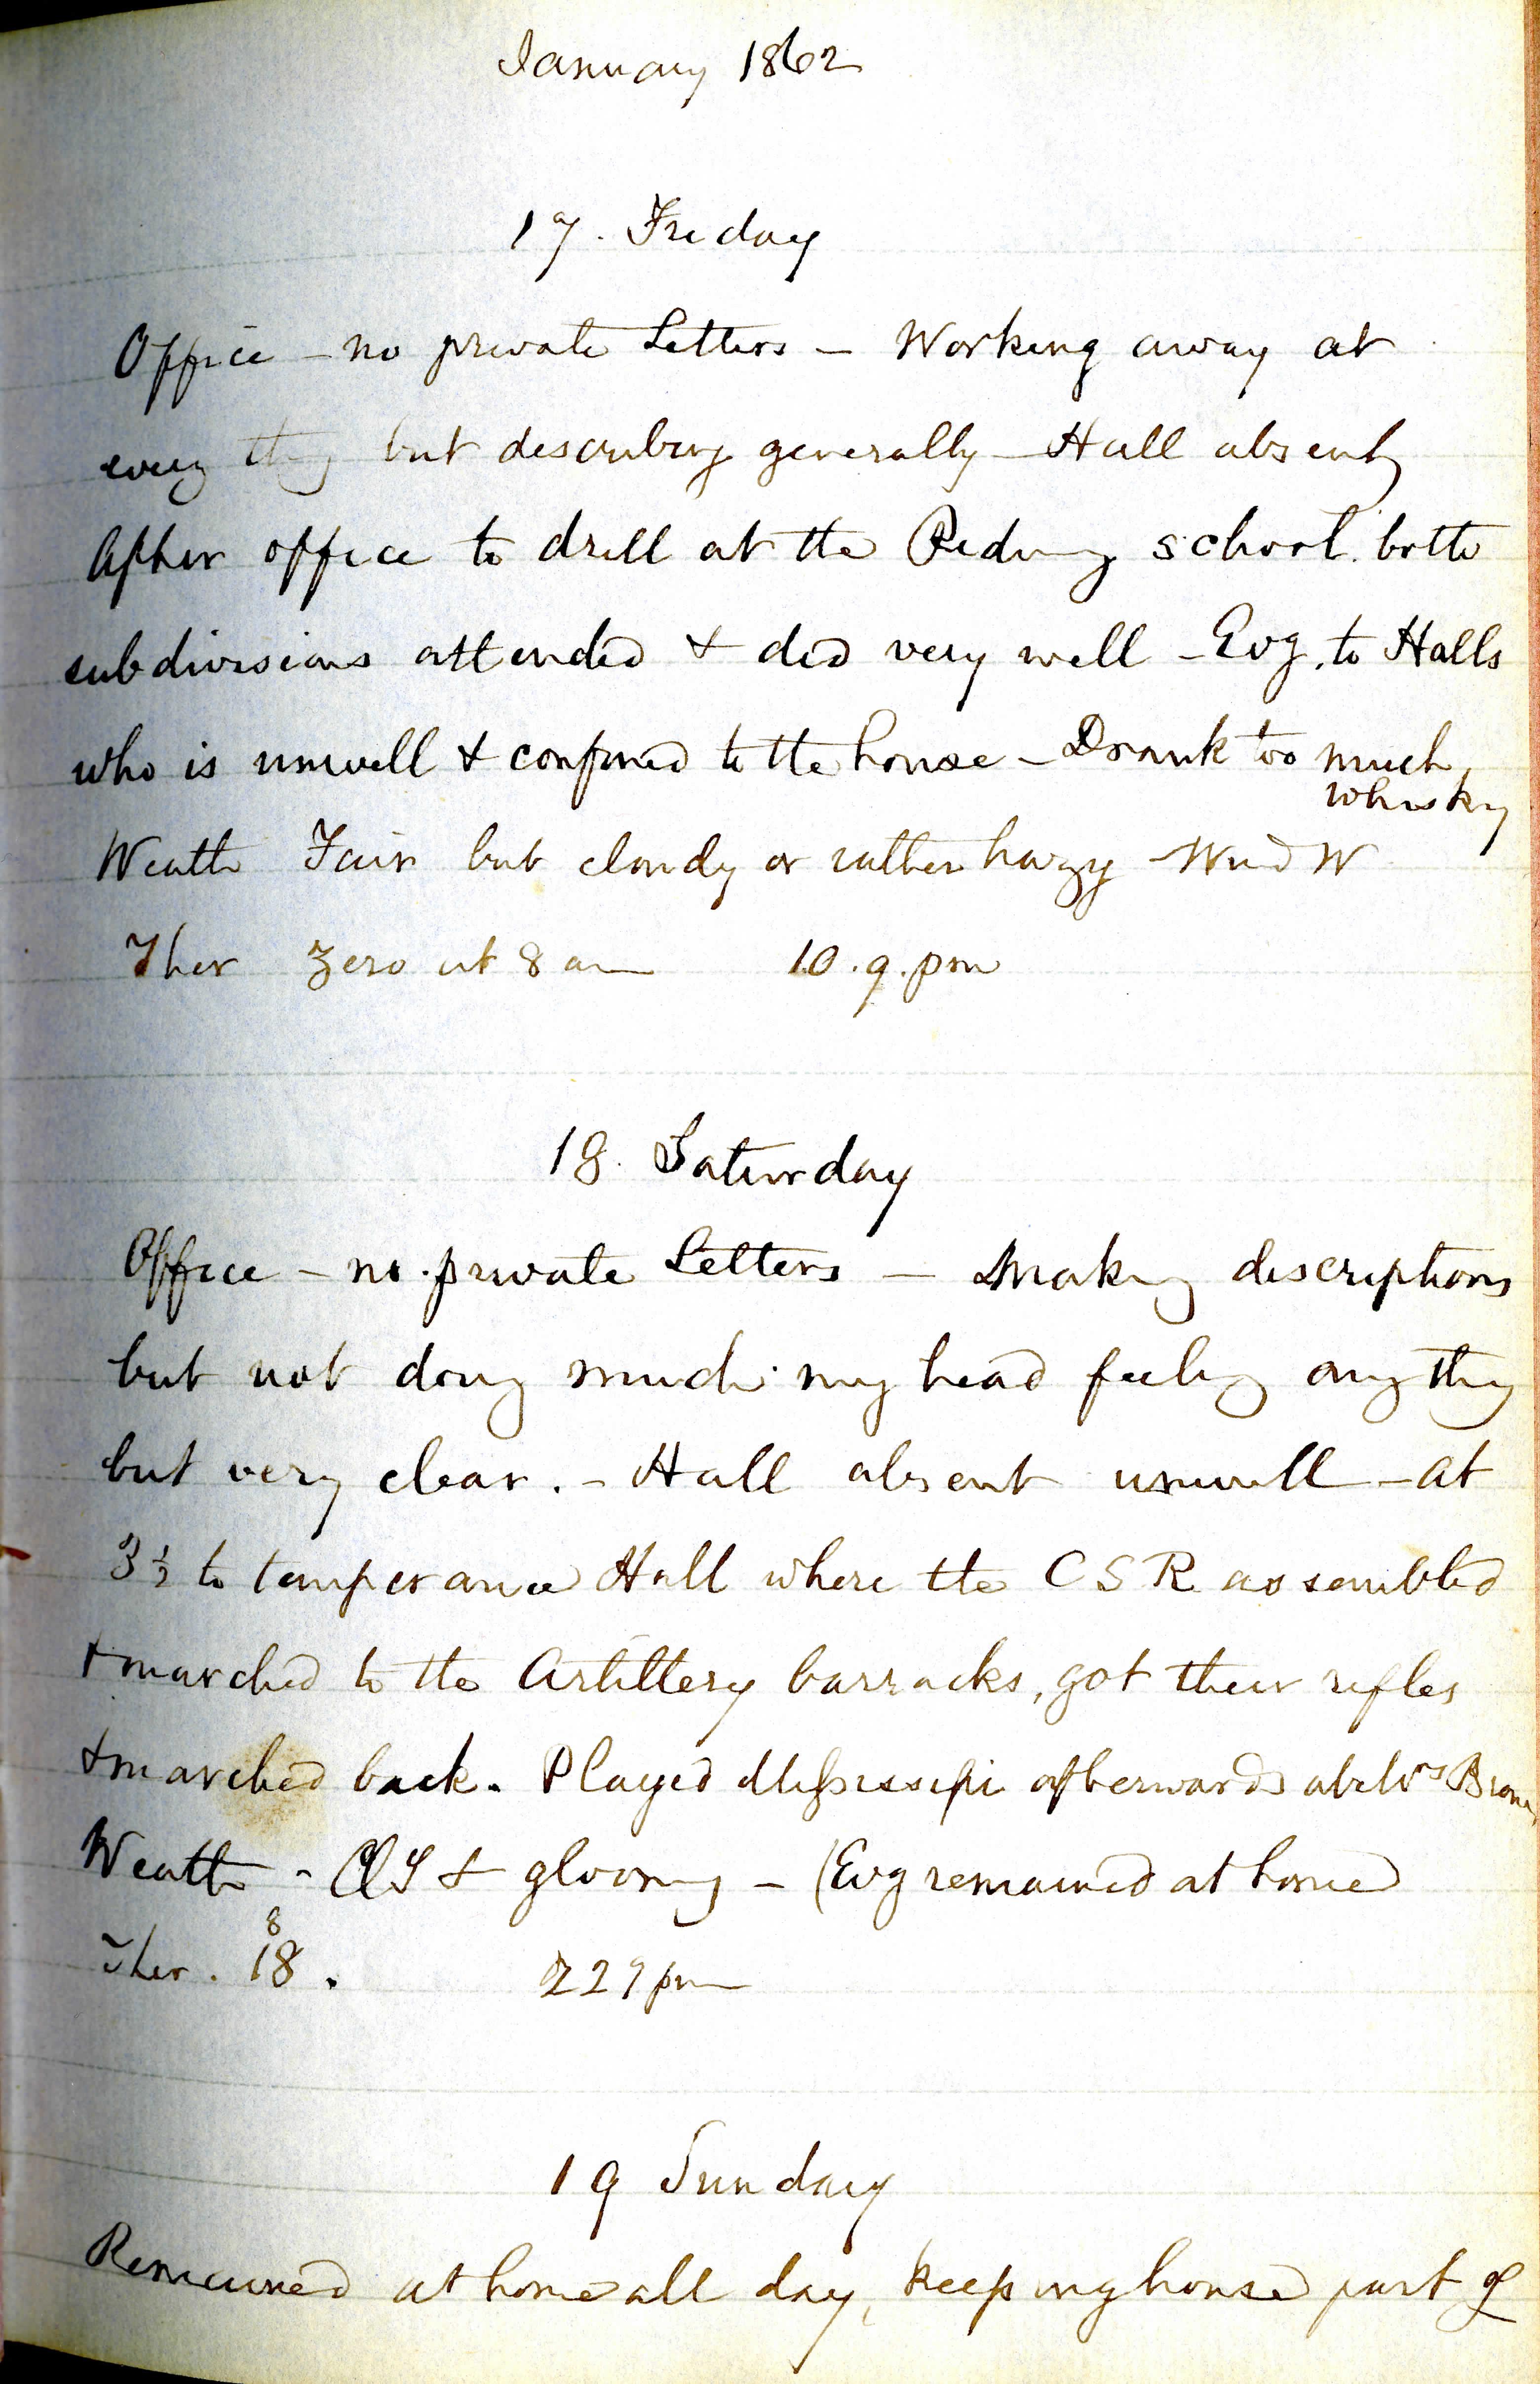 January 1862
17. Friday
Office - no private Letters - Working away at
every thing but describing generally - Hall absent
After office to drill at the Riding school. both
subdivisions attended & did very well - Evg. to Halls
who is unwell & confined to the house - Drank too much
whisky
Weath Fair but cloudy or rather hazy - Wind W
Ther Zero at 8 am 10. 9. pm
18. Saturday
Office - no private Letters - Making descriptions
but not doing much my head feeling any thing
but very clear. - Hall absent unwell - at
3½ to temperance Hall where the C S R assembled
& marched to the Artillery barracks, got their rifles
& marched back. Played Missisipi afterwards at
Weath - & gloomy - (Evg remained at home
Ther. 18. 8 22 9 pm
19 Sunday
Remained at home all day, keeping house part of